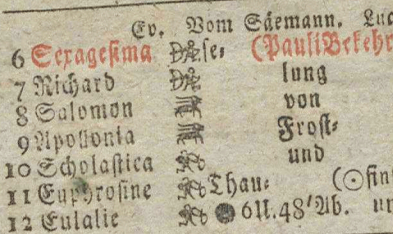 Ev. Vom Säemann. Luc
6 Sexagesima se- (Pauli Bekehr
7 Richard lung
8 Salomon von
9 Apollonia Frost-
10 Scholastica und
11 Euphrosine Thau- (☉ fin
12 Eulalie 6U.48'Ab. un